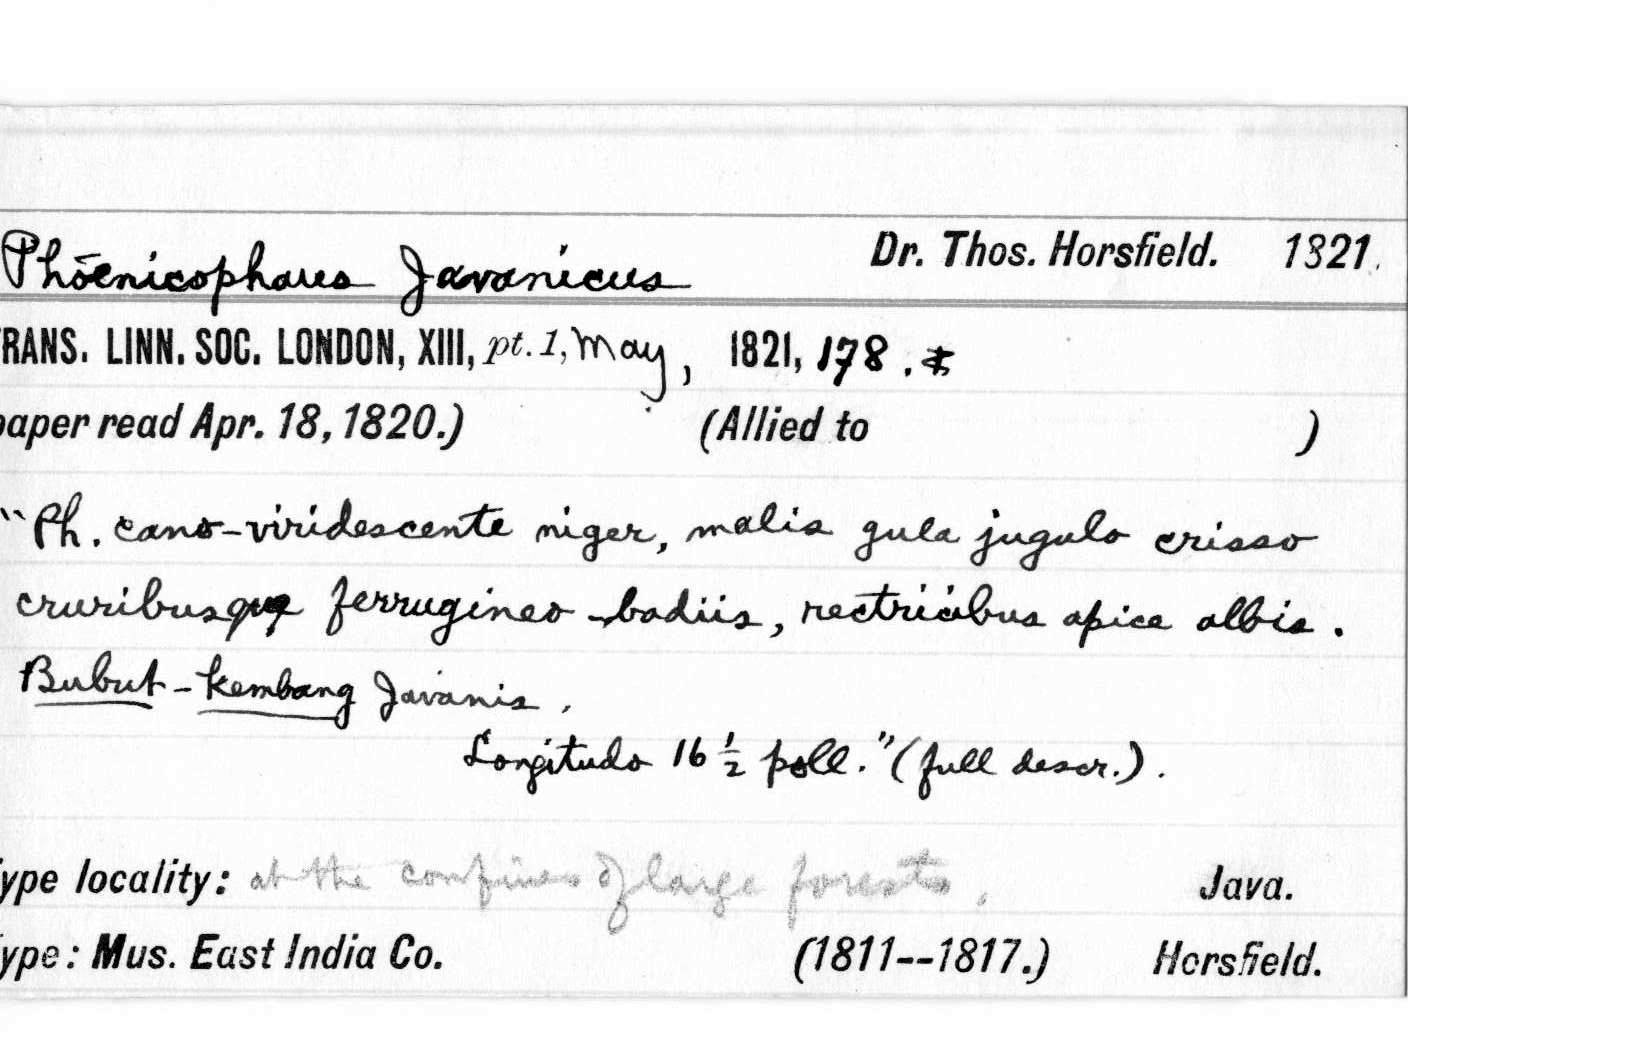 Phöenicophaus Javanicus Dr. Thos. Horsfield. 1821.
RANS. LINN. SOC. LONDON, XIII, pt. 1, May, 1821, 178.
paper read Apr. 18, 1820.) (Allied to )
"Ph. cano-viridescente niger, malis gula jugulo crisso
cruribusque ferrugineo-badiis, rectricibus apice albis.
Bubut-kembang Javanis.
Longitudo 16 1/2 poll." (full descr.).
ype locality: at the confines of large forests, Java.
ype: Mus. East India Co. (1811--1817.) Horsfield.